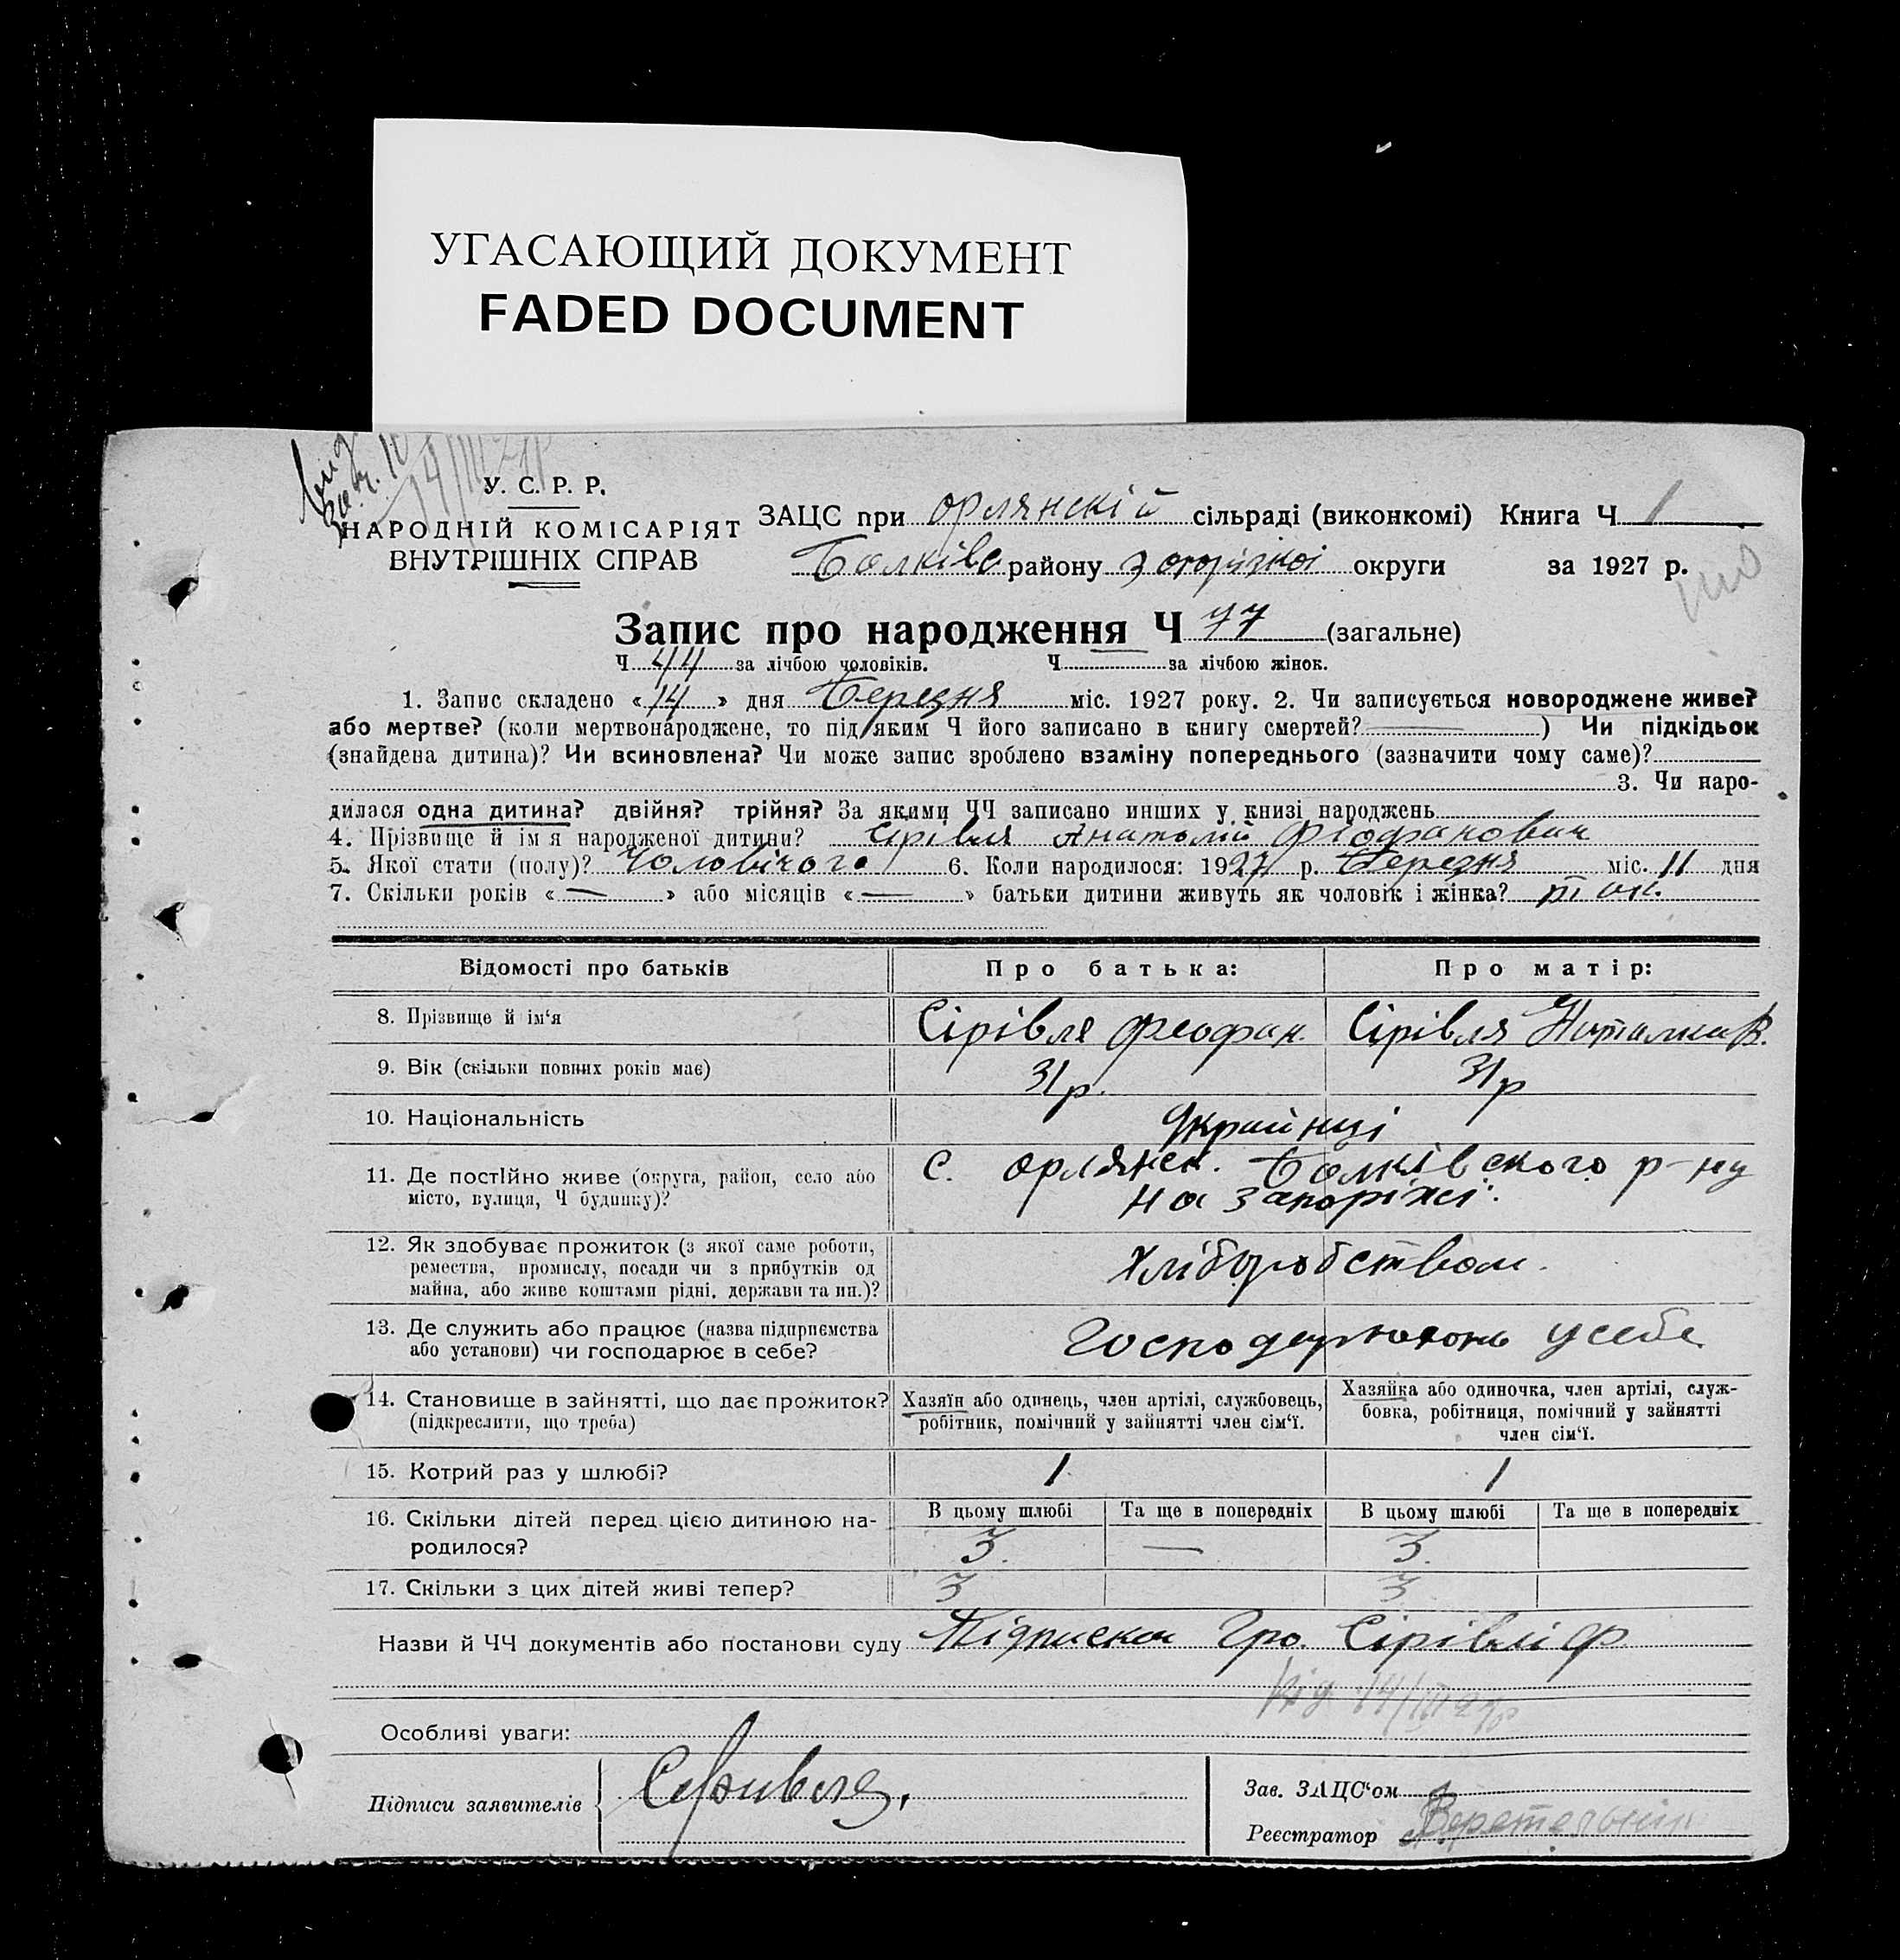 УГАСАЮЩИЙ ДОКУМЕНТ
FADED DOCUMENT
У. С. Р. Р.
НАРОДНІЙ КОМІСАРІЯТ
ВНУТРІШНІХ СПРАВ
ЗАЦС при Орлянскій сільраді (виконкомі) Книга Ч 1
Балківс району Запоріжної округи за 1927 р.
Запис про народження Ч 77 (загальне)
Ч 44 за лічбою чоловіків. Ч за лічбою жінок.
1. Запис складено «14» дня Березня міс. 1927 року. 2. Чи записується новороджене живе?
або мертве? (коли мертвонароджене, то під яким Ч його записано в книгу смертей? — ) Чи підкідьок
(знайдена дитина)? Чи всиновлена? Чи може запис зроблено взаміну попереднього (зазначити чому саме)?
3. Чи наро-
дилася одна дитина? двійня? трійня? За якими ЧЧ записано инших у книзі народжень
4. Прізвище й ім я народженої дитини? Сірівля Анатолій Феофанович
5. Якої стати (полу)? Чоловічого 6. Коли народилося: 1927 р. Березня міс. 11 дня
7. Скільки років « — » або місяців « — » батьки дитини живуть як чоловік і жінка? так.
Відомості про батьків Про батька: Про матір:
8. Прізвище й ім‘я Сірівля Феофан. Сірівля Наталка В.
9. Вік (скільки повних років має) 31 р. 31 р
10. Національність Українці
11. Де постійно живе (округа, район, село або С. Орлянск. Балківского р-ну
місто, вулиця, Ч будинку)? на Запоріжі.
12. Як здобуває прожиток (з якої саме роботи,
ремества, промислу, посади чи з прибутків од Хліборобством.
майна, або живе коштами рідні, держави та ин.)?
13. Де служить або працює (назва підприємства Господарюють у себе
або установи) чи господарює в себе?
14. Становище в зайнятті, що дає прожиток? Хазяїн або одинець, член артілі, службовець, Хазяйка або одиночка, член артілі, служ-
(підкреслити, що треба) робітник, помічний у зайнятті член сім‘ї. бовка, робітниця, помічний у зайнятті
член сім‘ї.
15. Котрий раз у шлюбі? 1. 1
16. Скільки дітей перед цією дитиною на- В цьому шлюбі Та ще в попередніх В цьому шлюбі Та ще в попередніх
родилося? 3. — 3.
17. Скільки з цих дітей живі тепер? 3 3
Назви й ЧЧ документів або постанови суду Підписка Гро. Сірівлі Ф
Від 14/III 27р
Особливі уваги:
Підписи заявителів Серивля,
Зав. ЗАЦС‘ом
Реєстратор